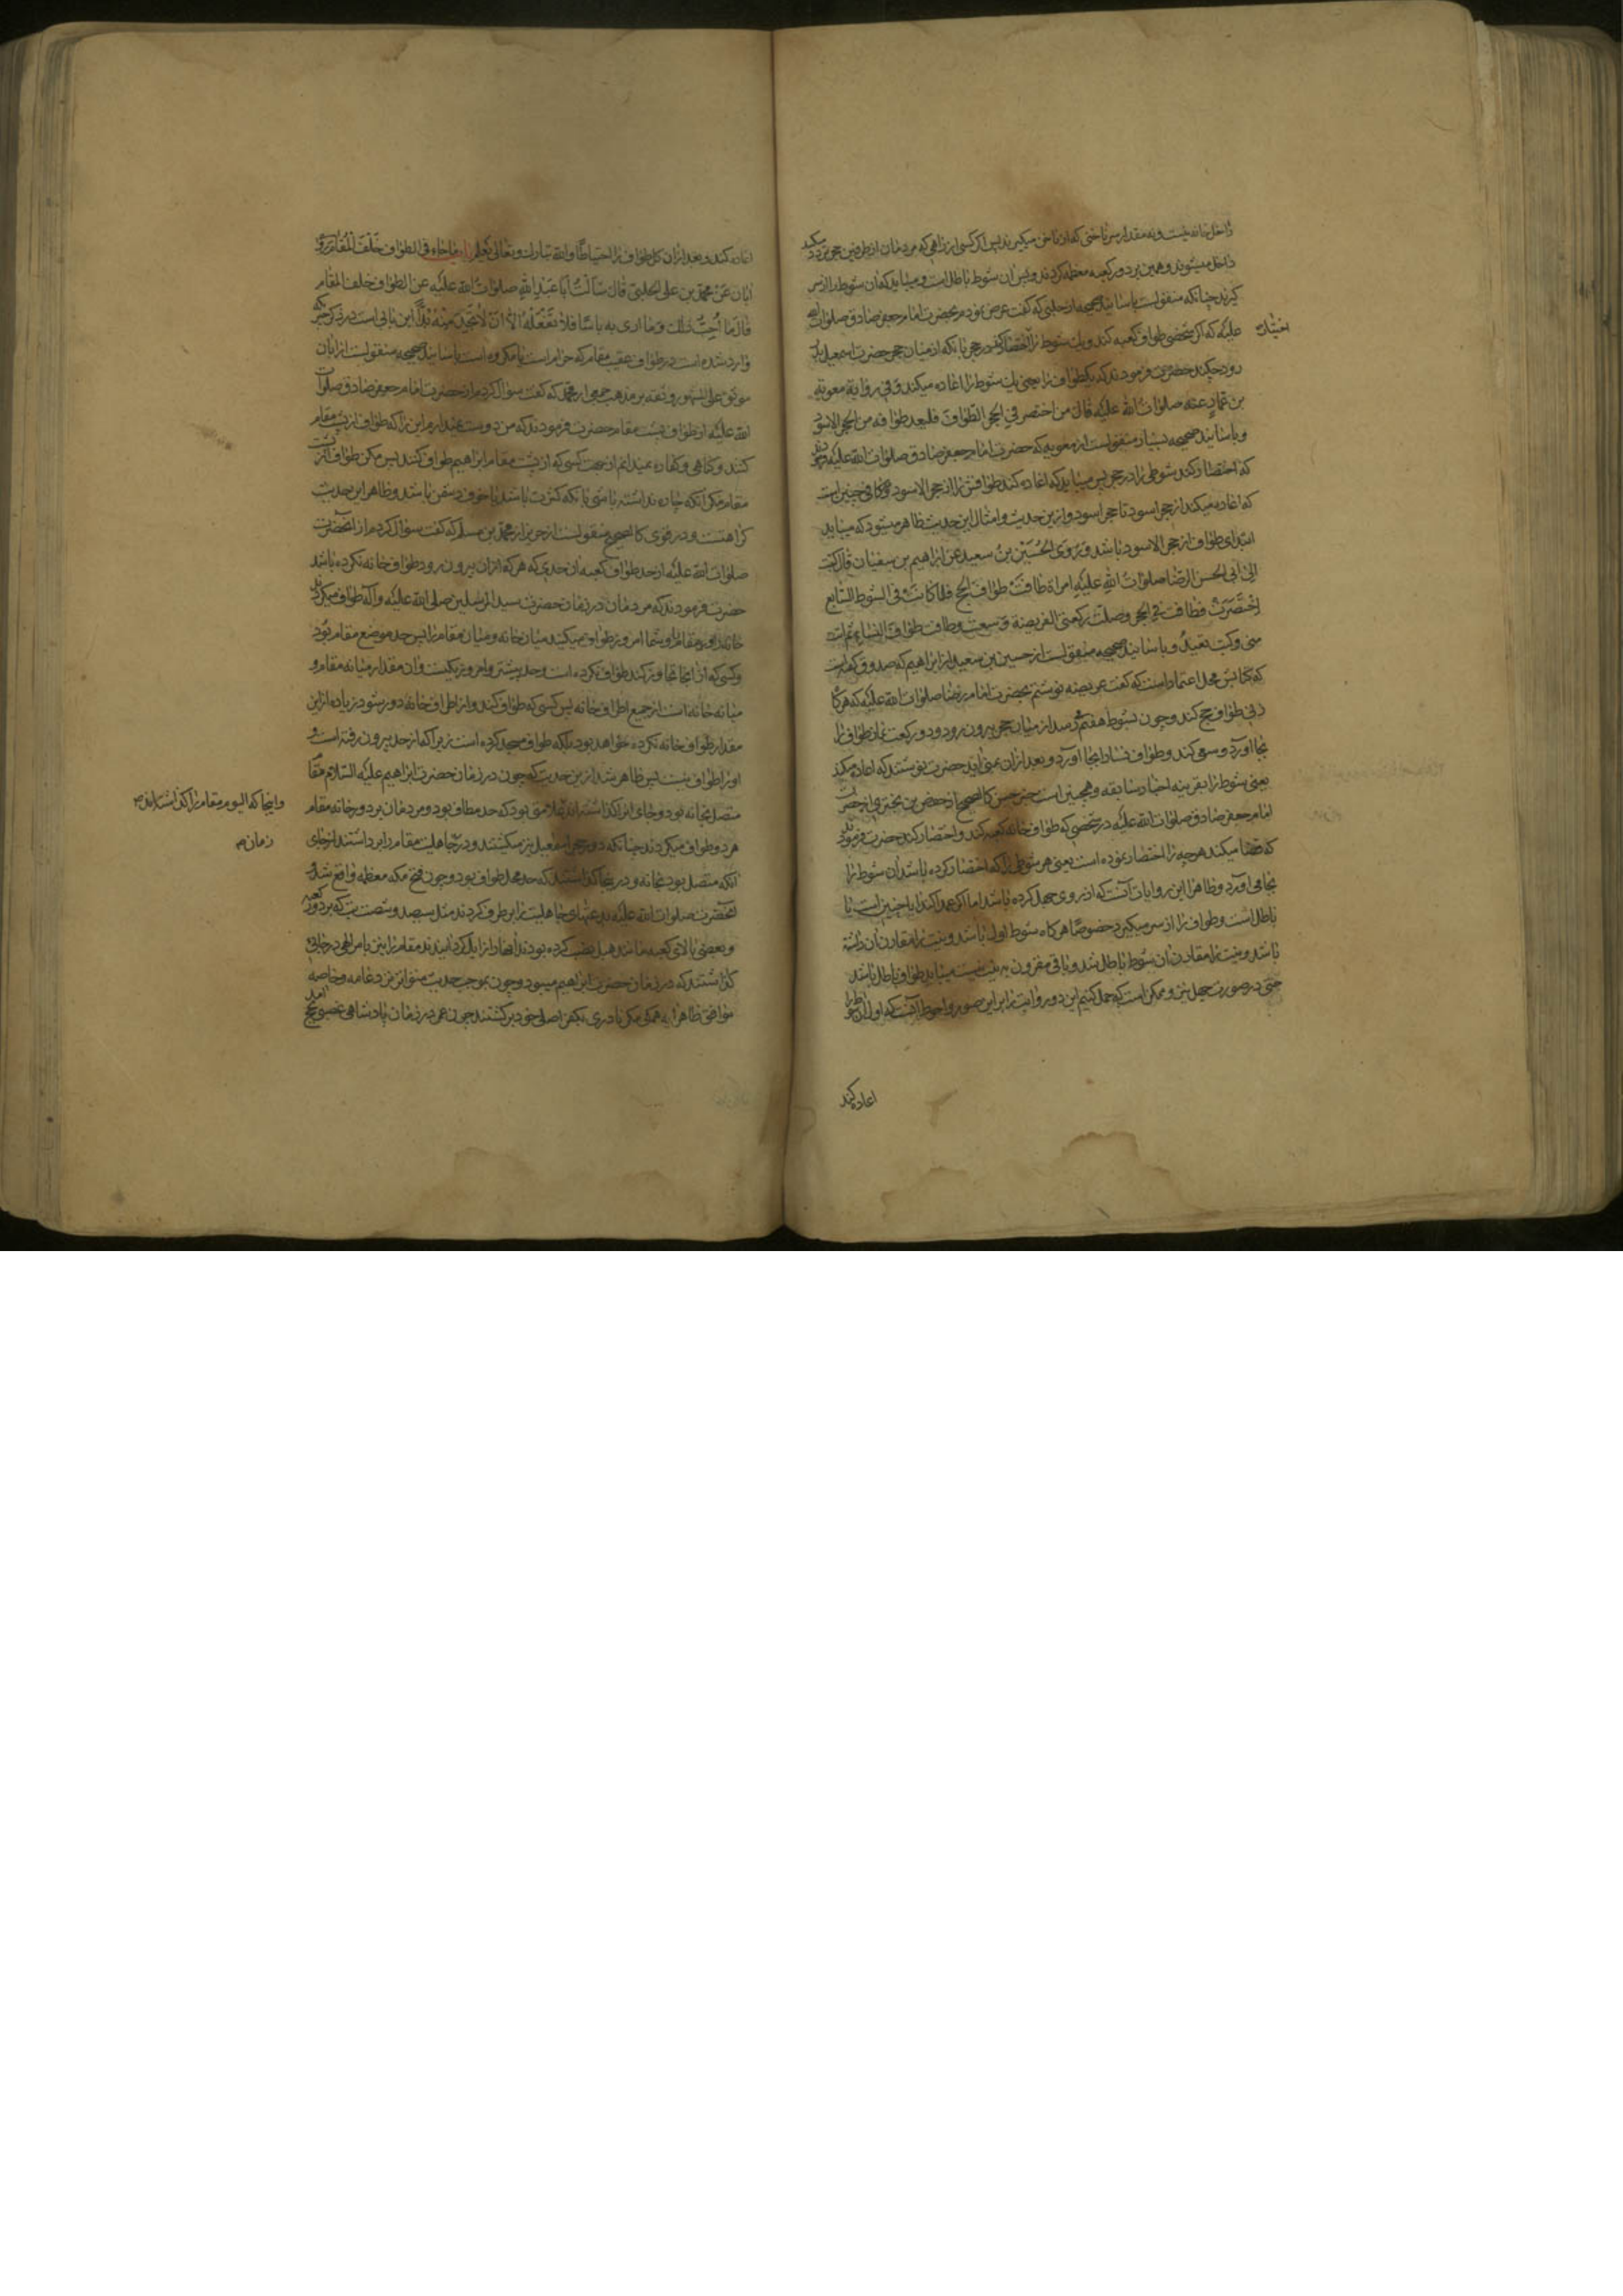 داخل خانه نیست و نه مقدار سر ناخنی که از ناخن میگیرند پس اگر کسی از راهی که مردمان از طرفین حجر
داخل میشوند و همین بر دور کعبه معظمه کردند و پس آن شوط باطل است و میباید که آن شوط را از سر
گیرند چنانکه منقولست باسانید صحیحه از حلبی که گفت عرض نمودم بحضرت امام جعفر صادق صلوات الله
علیه که اگر شخصی طواف کعبه کند و یک شوط را اختصار کند در حجر بانکه از میان حجر حضرت اسمعیل بدر
رود چکند حضرت فرمودند که یکطواف را یعنی یک شوط را اعاده میکند و فی روایة معویة
بن عمار عنه صلوات الله علیه قال من اختصر فی الحجر الطواف فلیعد طوافه من الحجر الاسود
و باسانید صحیحه بسیار منقولست از معویه که حضرت امام جعفر صادق صلوات الله علیه فرمودند
که اختصار کند شوطی را در حجر پس میباید که اعاده کند طوافش را از حجر الاسود و در کافی چنین است
که اعاده میکند از حجر اسود تا حجر اسود و ازین حدیث و امثال این حدیث ظاهر میشود که میباید
ابتدای طواف از حجر الاسود باشد و روی الحسین بن سعید عن ابراهیم بن سفیان قال کتبت
الی ابی الحسن الرضا صلوات الله علیه امراة طافت طواف الحج فلما کانت فی الشوط السابع
اختصرت فطافت فی الحجر وصلت رکعتی الفریضة وسعت وطافت طواف النساء ثم اتت
منی وکتب تعید و باسانید صحیحه منقولست از حسین بن سعید از ابراهیم که صدوق گفته است
که کتابش محل اعتماد است که گفت عریضه نوشتم بحضرت امام رضا صلوات الله علیه که هرگاه
زنی طواف حج کند و چون بشوط هفتم رسد از میان حجر بیرون رود و دو رکعت نماز طواف را
بجا آورد و سعی کند و طواف نسا را بجا آورد و بعد از آن بمنی آید حضرت نوشتند که اعاده میکند
یعنی شوط را بقرینه اخبار سابقه و همچنین است خبر حسن کالصحیح از حفص بن بختری از حضرت
امام جعفر صادق صلوات الله علیه در شخصی که طواف خانه کعبه کند و اختصار کند حضرت فرمودند
که قضا میکند هرچه را اختصار نموده است یعنی هر شوطی را که اختصار کرده باشد آن شوط را
بجا می آورد و ظاهر این روایات آنست که از روی جهل کرده باشد اما اگر عمدا کند آیا چنین است یا
باطل است و طواف را از سر میگیرد خصوصا هرگاه شوط اول باشد و نیت را مقارن آن داشته
باشد و نیت را مقارن آن شوط باطل شد و باقی مقرون به نیت نیست میباید طواف باطل باشد
حتی در صورت جهل نیز و ممکن است که حمل کنیم این دو روایت را بر این صور و احوط آنست که اول آن شوط را
اعاده کند
اعاده کند و بعد از آن کل طواف را احتیاطا والله تبارک وتعالی یعلم باب ما جاء فی الطواف خلف المقام روی
ابان عن محمد بن علی الحلبی قال سالت ابا عبد الله صلوات الله علیه عن الطواف خلف المقام
قال ما احب ذلک وما اری به باسا فلا تفعله الا ان لا تجد منه بدا این بابی است در ذکر خبری که
وارد شده است در طواف عقب مقام که حرام است یا مکروه است باسانید صحیحه منقولست از ابان
موثق علی المشهور و ثقه بر مذهب جمعی از محمد که گفت سؤال کردم از حضرت امام جعفر صادق صلوات
الله علیه از طواف پشت مقام حضرت فرمودند که من دوست نمیدارم این را که طواف از پشت مقام
کنند و گناهی و کفاره نمیدانم از جهت کسی که از پشت مقام ابراهیم طواف کند پس مکن طواف از پشت
مقام مگر آنکه چاره نداشته باشی بانکه کثرت باشد یا خوف دشمن باشد و ظاهر این حدیث
کراهتست و در قوی کالصحیح منقولست از حریز از محمد بن مسلم که گفت سؤال کردم از آنحضرت
صلوات الله علیه از حد طواف کعبه آن حدی که هر که از آن بیرون رود طواف خانه نکرده باشد
حضرت فرمودند که مردمان در زمان حضرت سید المرسلین صلی الله علیه وآله طواف میکردند
خانه و مقام را و شما امروز طواف میکنید میان خانه و میان مقام را پس حد موضع مقام بود
و کسی که از آنجا تجاوز کند طواف نکرده است و حد پیشتر و امروز یکیست و آن مقدار میانه مقام و
میانه خانه است از جمیع اطراف خانه پس کسی که طواف کند و از اطراف خانه دور شود زیاده ازین
مقدار طواف خانه نکرده خواهد بود بلکه طواف مسجد کرده است زیرا که از حد بیرون رفته است و
او را طواف نیست پس ظاهر شد ازین حدیث که چون در زمان حضرت ابراهیم علیه السلام مقام
متصل بخانه بود و جای آنرا گذاشته اند علامتی بود که حد مطاف بود و مردمان بر دور خانه مقام
هر دو طواف میکردند چنانکه دور حجر اسمعیل نیز میگشتند و در جاهلیت مقام را برداشتند از جای
آنکه متصل بود بخانه و در ینجا گذاشتند که حد محل طواف بود و چون فتح مکه معظمه واقع شد
آنحضرت صلوات الله علیه بدعتهای جاهلیت را بر طرف کردند مثل سیصد و شصت بت که بر دور کعبه
و بعضی بالای کعبه مانند هبل نصب کرده بودند آنها را زایل گردانیدند مقام را نیز بامر الهی در جایی
گذاشتند که در زمان حضرت ابراهیم میبود و چون بموجب حدیث متواتر نزد عامه و خاصه
موافق ظاهرا به همگی مگر نادری بکفر اصلی خود برگشتند چون عمر در زمان پادشاهی بحج آمد
و اینجا که الیوم مقام را گذاشته اند
زمان